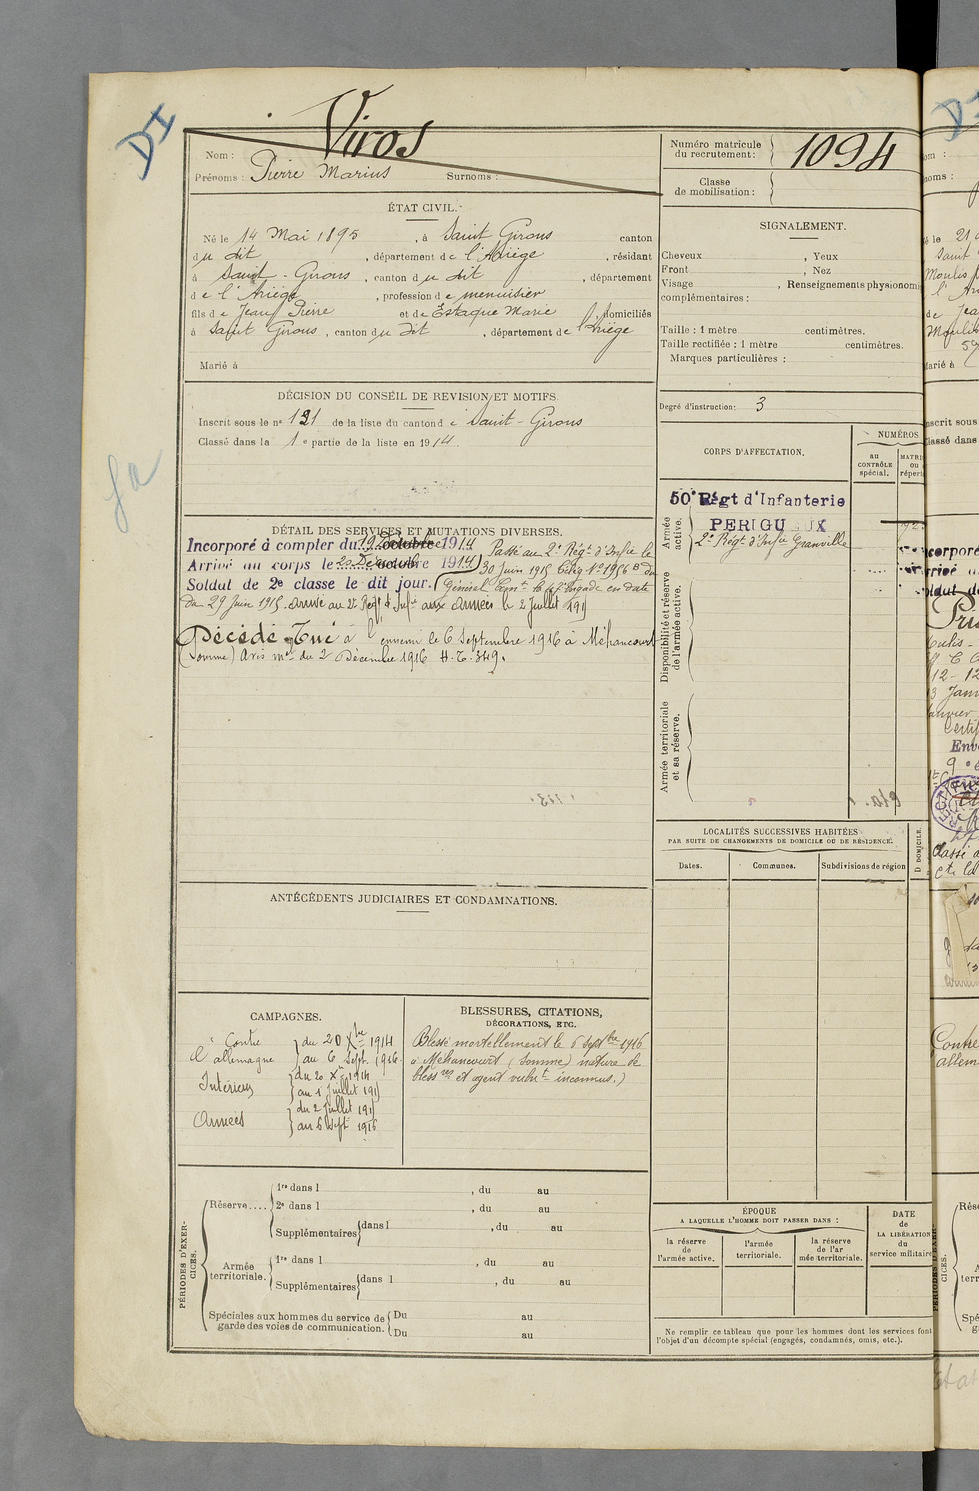 DI
Viros
Nom :
Prénoms : Pierre Marius Surnoms :
Numéro matricule
du recrutement : 1094
Classe
de mobilisation :
ÉTAT CIVIL.
Né le 14 Mai 1895, à Saint Girons canton
du dit, département de l'Ariège, résidant
à Saint-Girons, canton du dit, département
de l'Ariège, profession de menuisier
fils de Jean Pierre et de Estaque Marie, domiciliés
à Saint Girons, canton du dit, département de l'Ariège
Marié à
SIGNALEMENT.
Cheveux , Yeux
Front , Nez
Visage , Renseignements physionomi
complémentaires :
Taille : 1 mètre centimètres.
Taille rectifiée : 1 mètre centimètres.
Marques particulières :
Degré d'instruction : 3
DÉCISION DU CONSEIL DE REVISION ET MOTIFS.
Inscrit sous le n° 121 de la liste du canton de Saint-Girons
Classé dans la 1e partie de la liste en 1914.
CORPS D'AFFECTATION.
NUMÉROS
au
CONTRÔLE
spécial.
MATRI
ou
répert
Armée
active.
50e Régt d'Infanterie
PERIGUEUX
2e Régt d'Infie Granville
Disponibilité et réserve
de l'armée active.
Armée territoriale
et sa réserve.
DÉTAIL DES SERVICES ET MUTATIONS DIVERSES.
Incorporé à compter du 19 Décembre octobre 1914
Arrivé au corps le 20 Décembre octobre 1914
Soldat de 2e classe le dit jour.
Passé au 2e Régt d'Infie le
30 juin 1915
Général en date
du 29 Juin 1915. Arrivé au 2e Regt d'Infie aux armées le 2 Juillet 191
Décédé Tué à l'ennemi le 6 Septembre 1916 à Méhancourt
(Somme) Avis mel du 2 Décembre 1916 H.T. 349.
LOCALITÉS SUCCESSIVES HABITÉES
PAR SUITE DE CHANGEMENTS DE DOMICILE OU DE RÉSIDENCE.
Dates. Communes. Subdivisions de région
D DOMICILE.
ANTÉCÉDENTS JUDICIAIRES ET CONDAMNATIONS.
CAMPAGNES.
Contre
l'allemagne
du 20 Xbre 1914
au 6 Sept 1916.
Intérieur
du 20 Xre 1914
au 1 Juillet 191
Armées
du 2 Juillet 191
au 6 Sept 1916
BLESSURES, CITATIONS,
DÉCORATIONS, ETC.
Blessé mortellement le 6 Septbre 1916
à Méhancourt (Somme) nature de
blessres et agent vulnt inconnus.)
PÉRIODES D'EXER-
CICES.
Réserve....
1re dans l , du au
2e dans l , du au
Supplémentaires dans l , du au
Armée
territoriale.
1re dans l , du au
Supplémentaires dans l , du au
Spéciales aux hommes du service de
garde des voies de communication.
Du au
Du au
ÉPOQUE
A LAQUELLE L'HOMME DOIT PASSER DANS :
la réserve
de
l'armée active.
l'armée
territoriale.
la réserve
de l'ar
mée territoriale.
DATE
de
LA LIBÉRATION
du
service militaire
Ne remplir ce tableau que pour les hommes dont les services font
l'objet d'un décompte spécial (engagés, condamnés, omis, etc.).